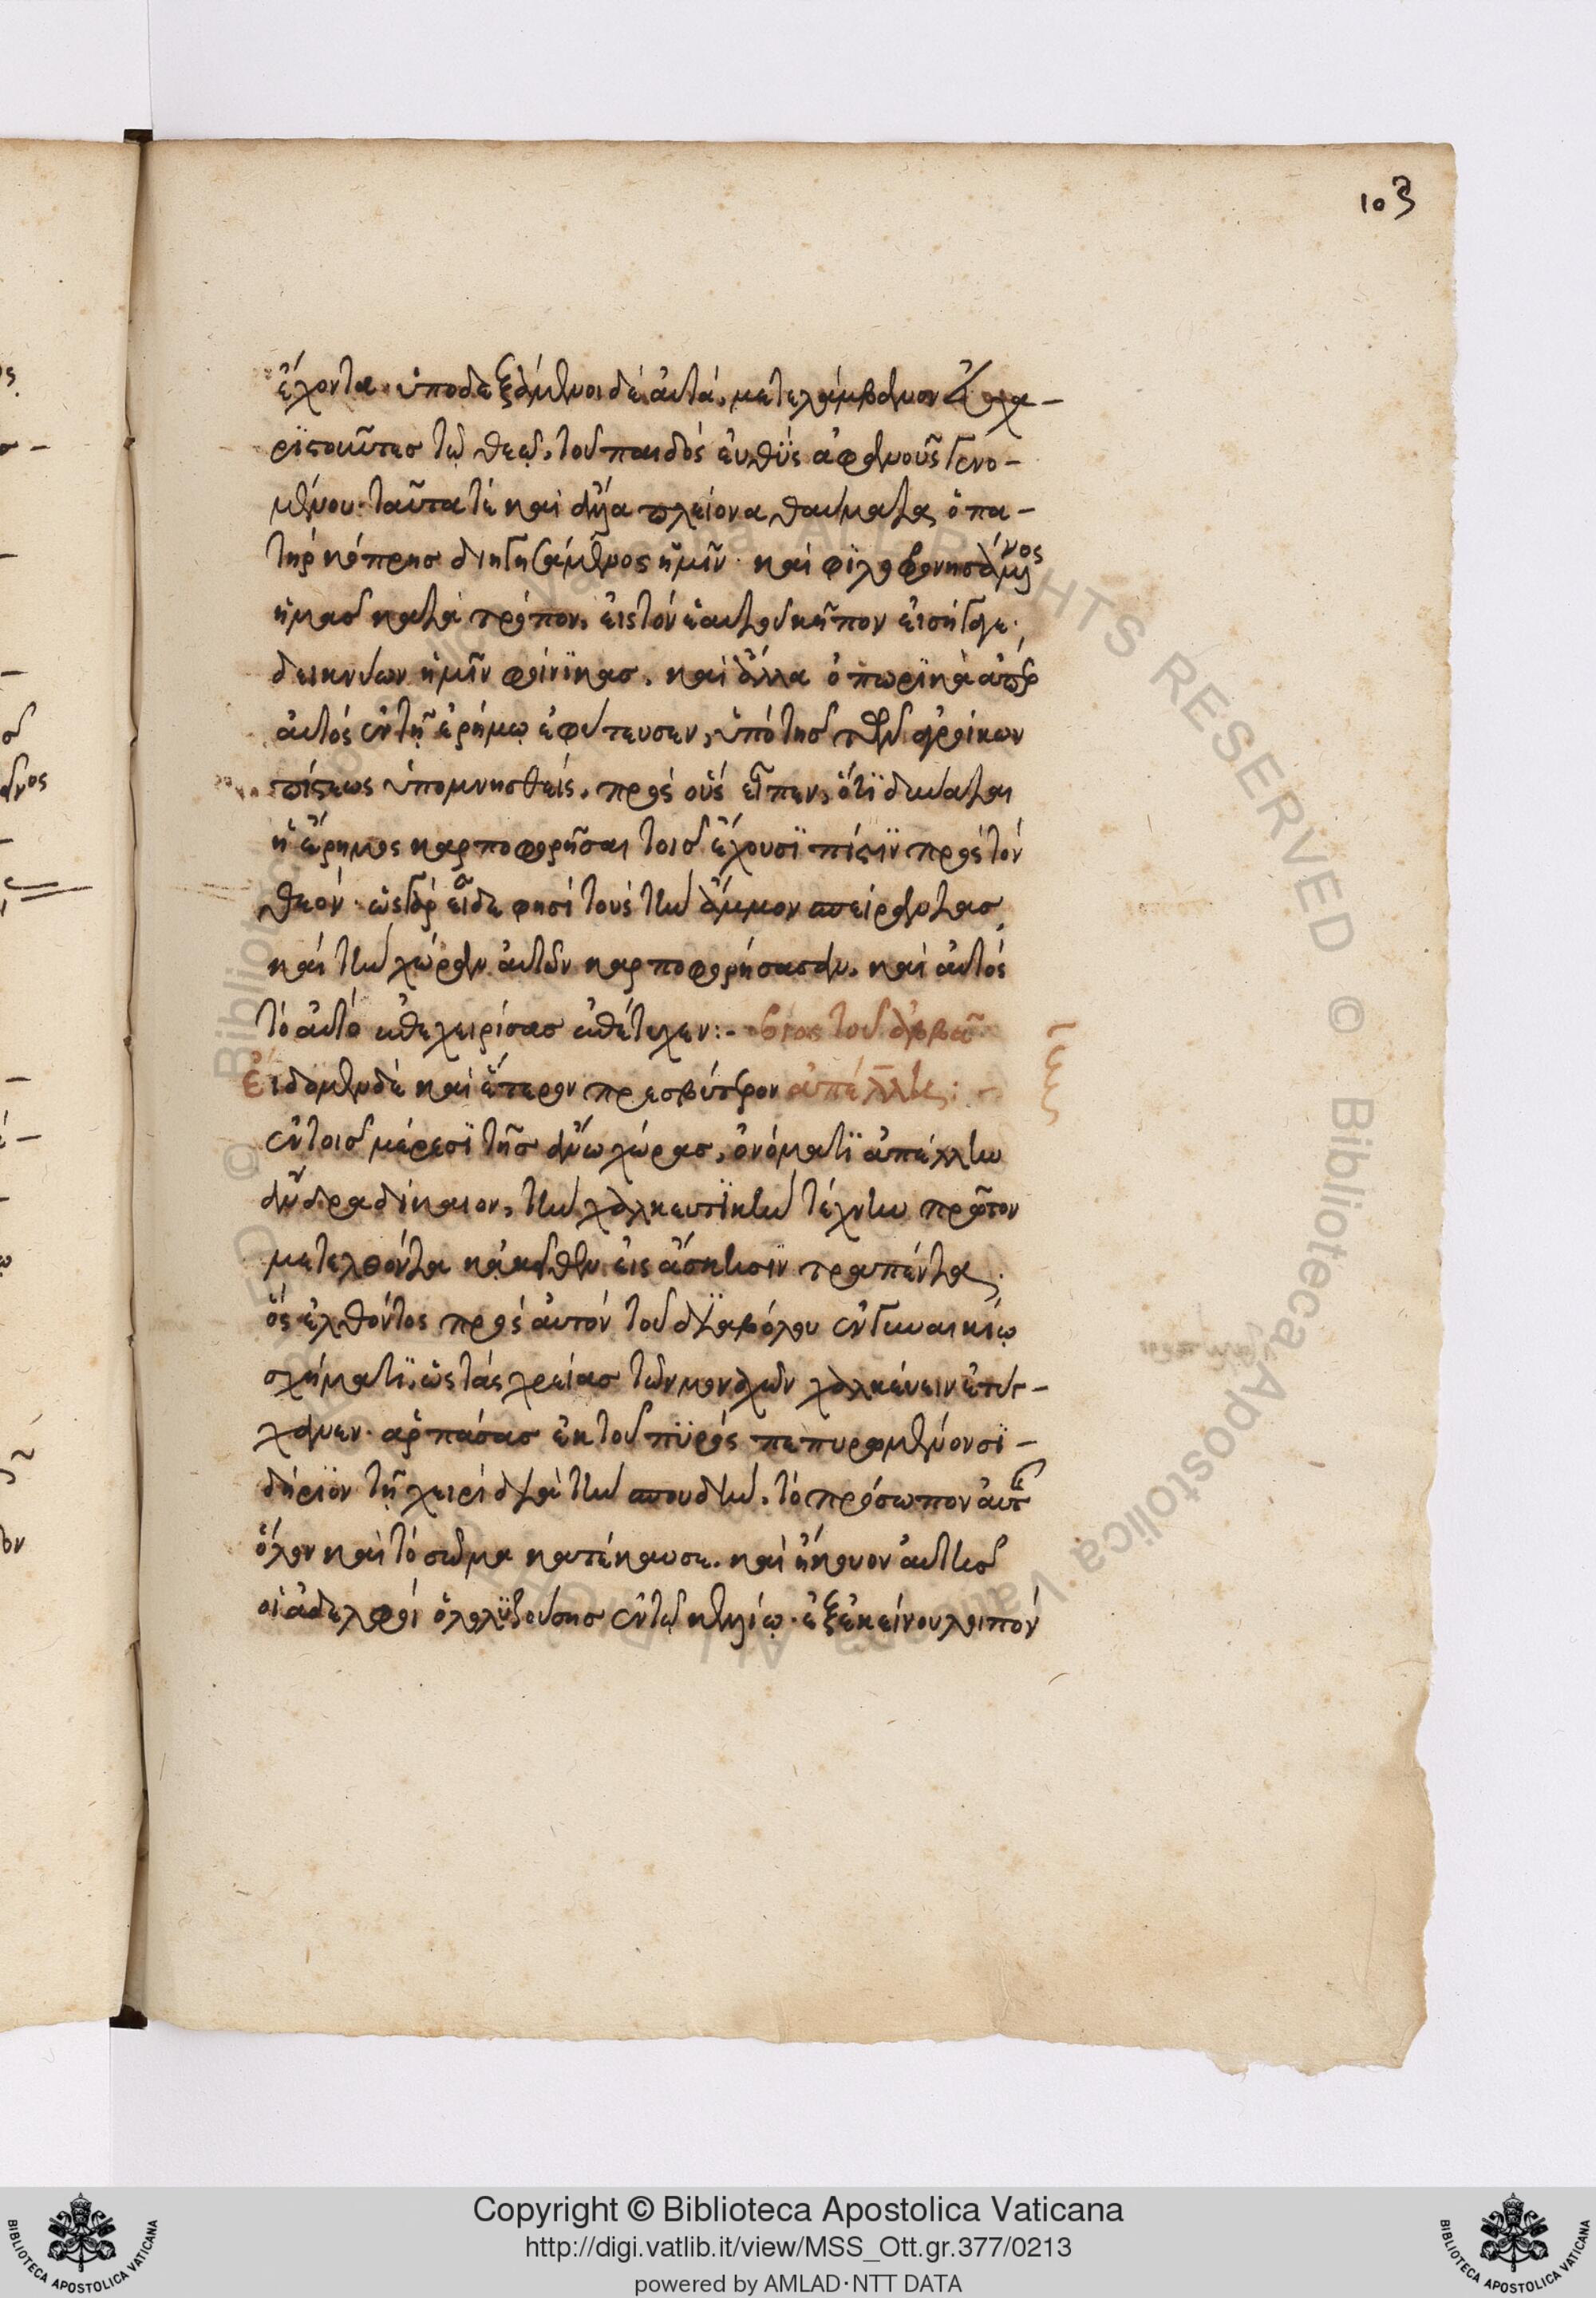 103
ἔχοντα· ὑποδεξάμενοι δὲ αὐτὰ, μετελάμβανον εὐχα-
ριστοῦντες τῷ θεῷ, τοῦ παιδὸς εὐθὺς ἀφανοῦς γενο-
μένου· ταῦτά τε καὶ ἄλλα πλείονα θαύματα ὁ πα-
τὴρ κόπρης διηγησάμενος ἡμῖν· καὶ φιλοφρονησάμενος
ἡμᾶς κατὰ τρόπον, εἰς τὸν ἑαυτοῦ κῆπον εἰσήγαγε·
δεικνύων ἡμῖν φοίνικας, καὶ ἄλλα ὀπωρικὰ ἅπερ
αὐτὸς ἐν τῇ ἐρήμῳ ἐφύτευσεν, ὑπὸ τῆς τῶν ἀγροίκων
πίστεως ὑπομνησθείς, πρὸς οὓς εἶπεν, ὅτι δύναται
ἡ ἔρημος καρποφορῆσαι τοῖς ἔχουσι πίστιν πρὸς τὸν
θεόν· ὡς γὰρ εἶδε φησὶ τοὺς τὴν ἄμμον σπείραντας,
καὶ τὴν χώραν αὐτῶν καρποφορήσασαν, καὶ αὐτὸς
τὸ αὐτὸ ἐπιχειρίσας ἐπέτυχεν:- βίος τοῦ ἀββᾶ
Εἴδομεν δὲ καὶ ἕτερον πρεσβύτερον ἀπελλῆ:-
ἐν τοῖς μέρεσι τῆς ἄνω χώρας, ὀνόματι ἀπελλὴν
ἄνδρα δίκαιον, τὴν χαλκευτικὴν τέχνην πρῶτον
μετελθόντα κἀκεῖθεν εἰς ἄσκησιν τραπέντα,
ὃς ἐλθόντος πρὸς αὐτὸν τοῦ διαβόλου ἐν γυναικίῳ
σχήματι, ὡς τὰς χρείας τῶν μοναχῶν χαλκεύειν ἐτύγ-
χανεν· ἁρπάσας ἐκ τοῦ πυρὸς πεπυρωμένον σι-
δήριον τῇ χειρὶ διὰ τὴν σπουδὴν, τὸ πρόσωπον αὐτῆς
ὅλον καὶ τὸ σῶμα κατέκαυσε. καὶ ἤκουον αὐτῆς
οἱ ἀδελφοὶ ὀλολυζούσης ἐν τῷ κελλίῳ· ἐξ ἐκείνου λοιπὸν
Copyright © Biblioteca Apostolica Vaticana
http://digi.vatlib.it/view/MSS_Ott.gr.377/0213
powered by AMLAD·NTT DATA
BIBLIOTECA APOSTOLICA VATICANA
BIBLIOTECA APOSTOLICA VATICANA